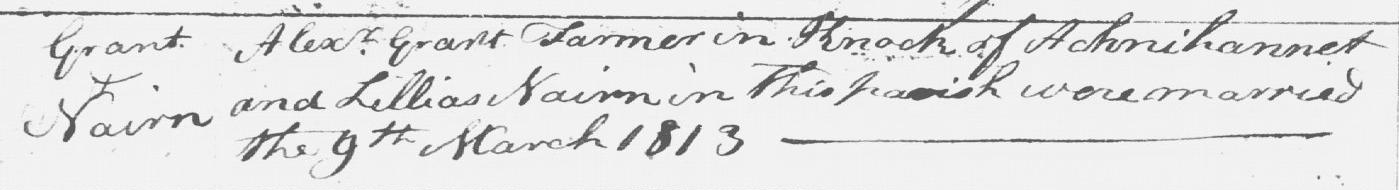 Grant Alexr. Grant Farmer in Knock of Achnihannet
& Nairn and Lillias Nairn in this parish were married
the 9th March 1813